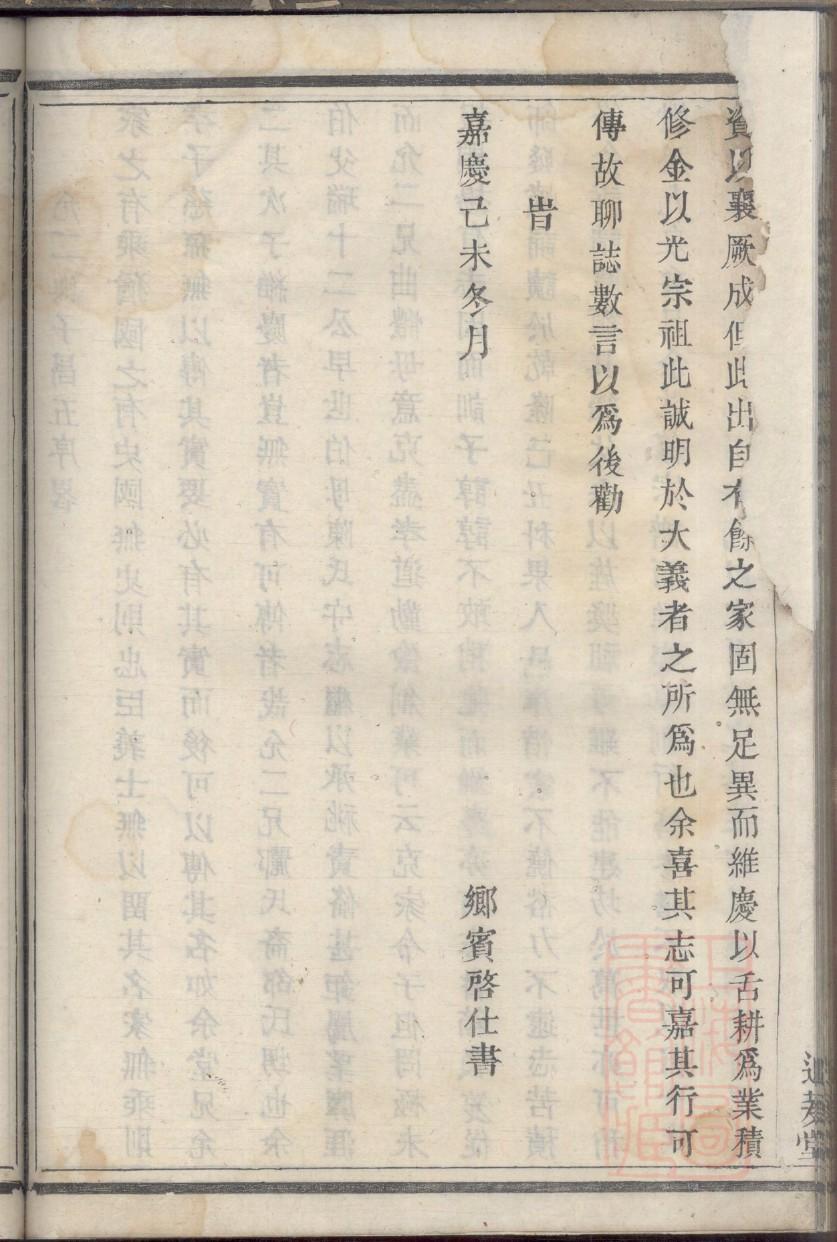 資以襄厥成但此出自有餘之家固無足異而維慶以舌耕爲業積
修金以光宗祖此誠明於大義者之所爲也余喜其志可嘉其行可
傳故聊誌數言以爲後勸
旹
嘉慶己未冬月
鄉賓啓仕書